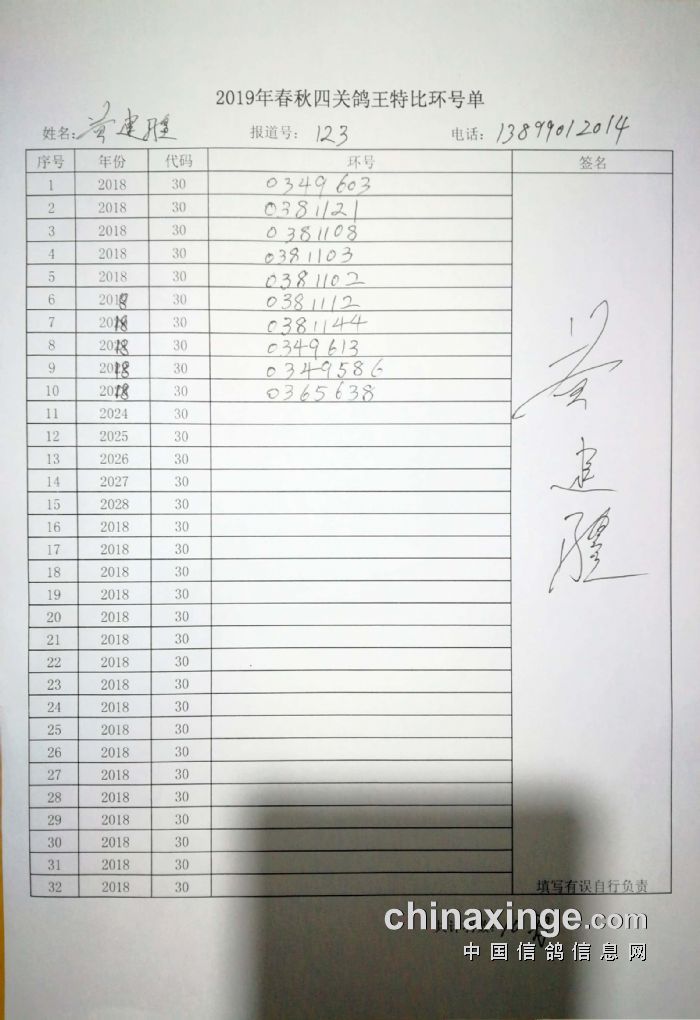 2019年春秋四关鸽王特比环号单
姓名: 黄建疆 报道号: 123 电话: 13899012014
序号 年份 代码 环号 签名
1 2018 30 0349603
2 2018 30 0381121
3 2018 30 0381108
4 2018 30 0381103
5 2018 30 0381102
6 2018 30 0381112
7 2018 30 0381144
8 2018 30 0349613
9 2018 30 0349586
10 2018 30 0365638
11 2024 30
12 2025 30
13 2026 30
14 2027 30
15 2028 30
16 2018 30
17 2018 30
18 2018 30
19 2018 30
20 2018 30
21 2018 30
22 2018 30
23 2018 30
24 2018 30
25 2018 30
26 2018 30
27 2018 30
28 2018 30
29 2018 30
30 2018 30
31 2018 30
32 2018 30
黄建疆
填写有误自行负责
chinaxinge.com
中国信鸽信息网